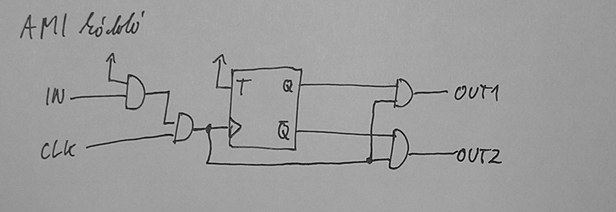 AMI kódoló
IN
CLK
T Q
Q̅
OUT1
OUT2